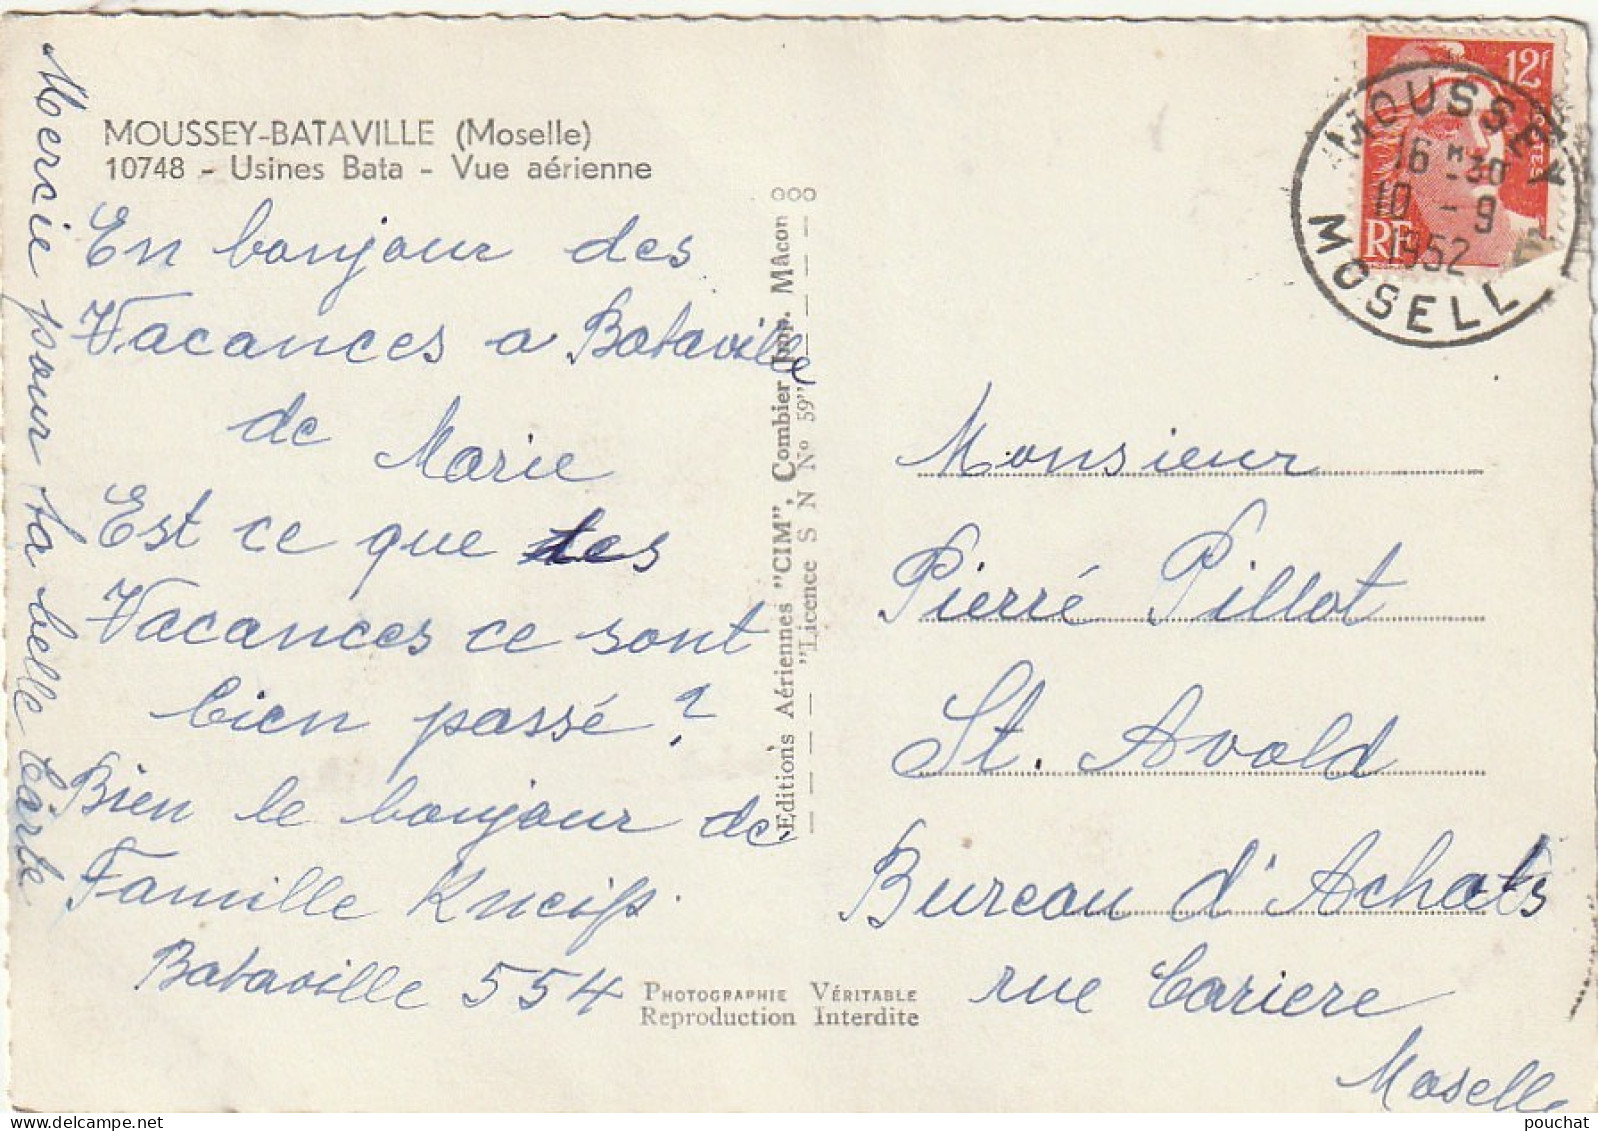 MOUSSEY-BATAVILLE (Moselle)
10748 - Usines Bata - Vue aérienne
En bonjour des
Vacances a Bataville
de Marie
Est ce que les
Vacances ce sont
bien passé ?
Bien le bonjour de
Famille Kneip.
Bataville 554
Mercie pour ta belle Carte
Editions Aériennes "CIM", Combier Imp. Mâcon
"Licence S N N° 59"
PHOTOGRAPHIE VÉRITABLE
Reproduction Interdite
12f
POSTES
RF
MOUSSEY
16 H 30
10 - 9
1952
MOSELL
Monsieur
Pierré Pillot
St. Avold
Bureau d'Achats
rue Cariere
Moselle
pouchat